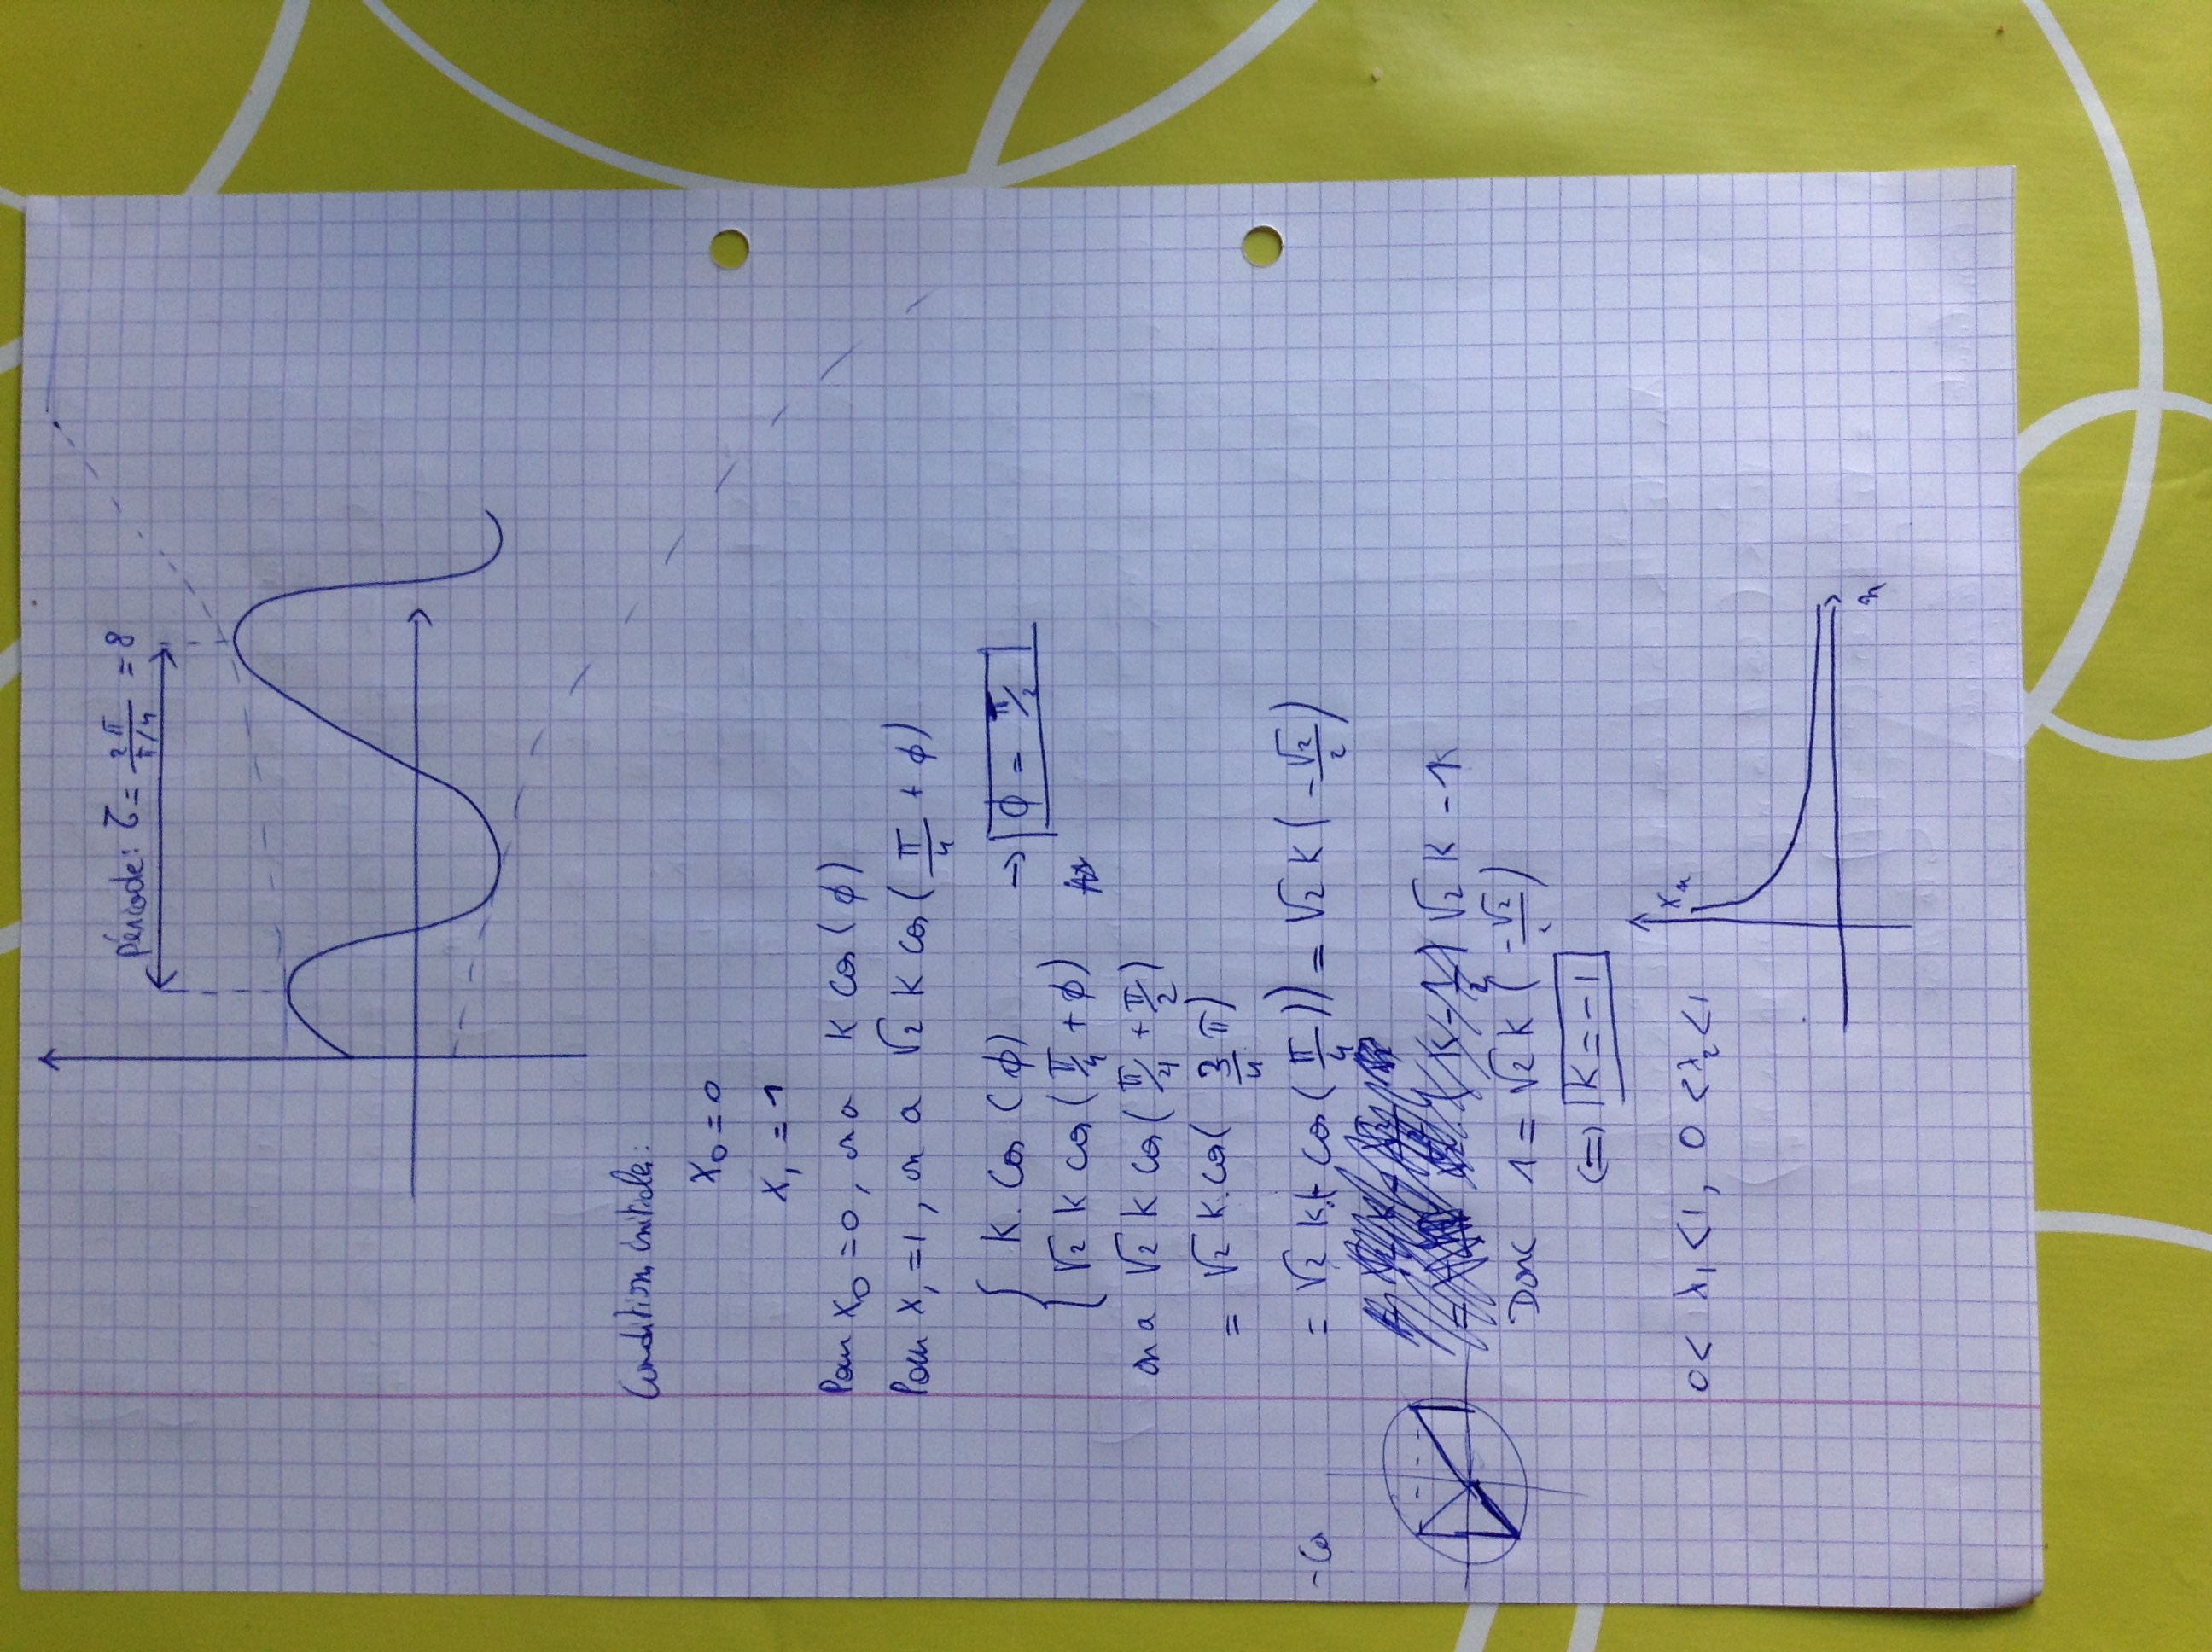 Période : τ = 2π/(π/4) = 8
Condition initiale :
X₀ = 0
X₁ = 1
Pour X₀ = 0, on a K cos(ϕ)
Pour X₁ = 1, on a √2 K cos(π/4 + ϕ)
{ K cos(ϕ)
√2 K cos(π/4 + ϕ) → ϕ = π/2
on a √2 K cos(π/4 + π/2)
= √2 K cos(3/4 π)
= √2 K cos(π/4)) = √2 K (-√2/2)
√2 K - 1
Donc 1 = √2 K (-√2/2)
(=) K = -1
0 < λ₁ < 1, 0 < λ₂ < 1
Xn
n